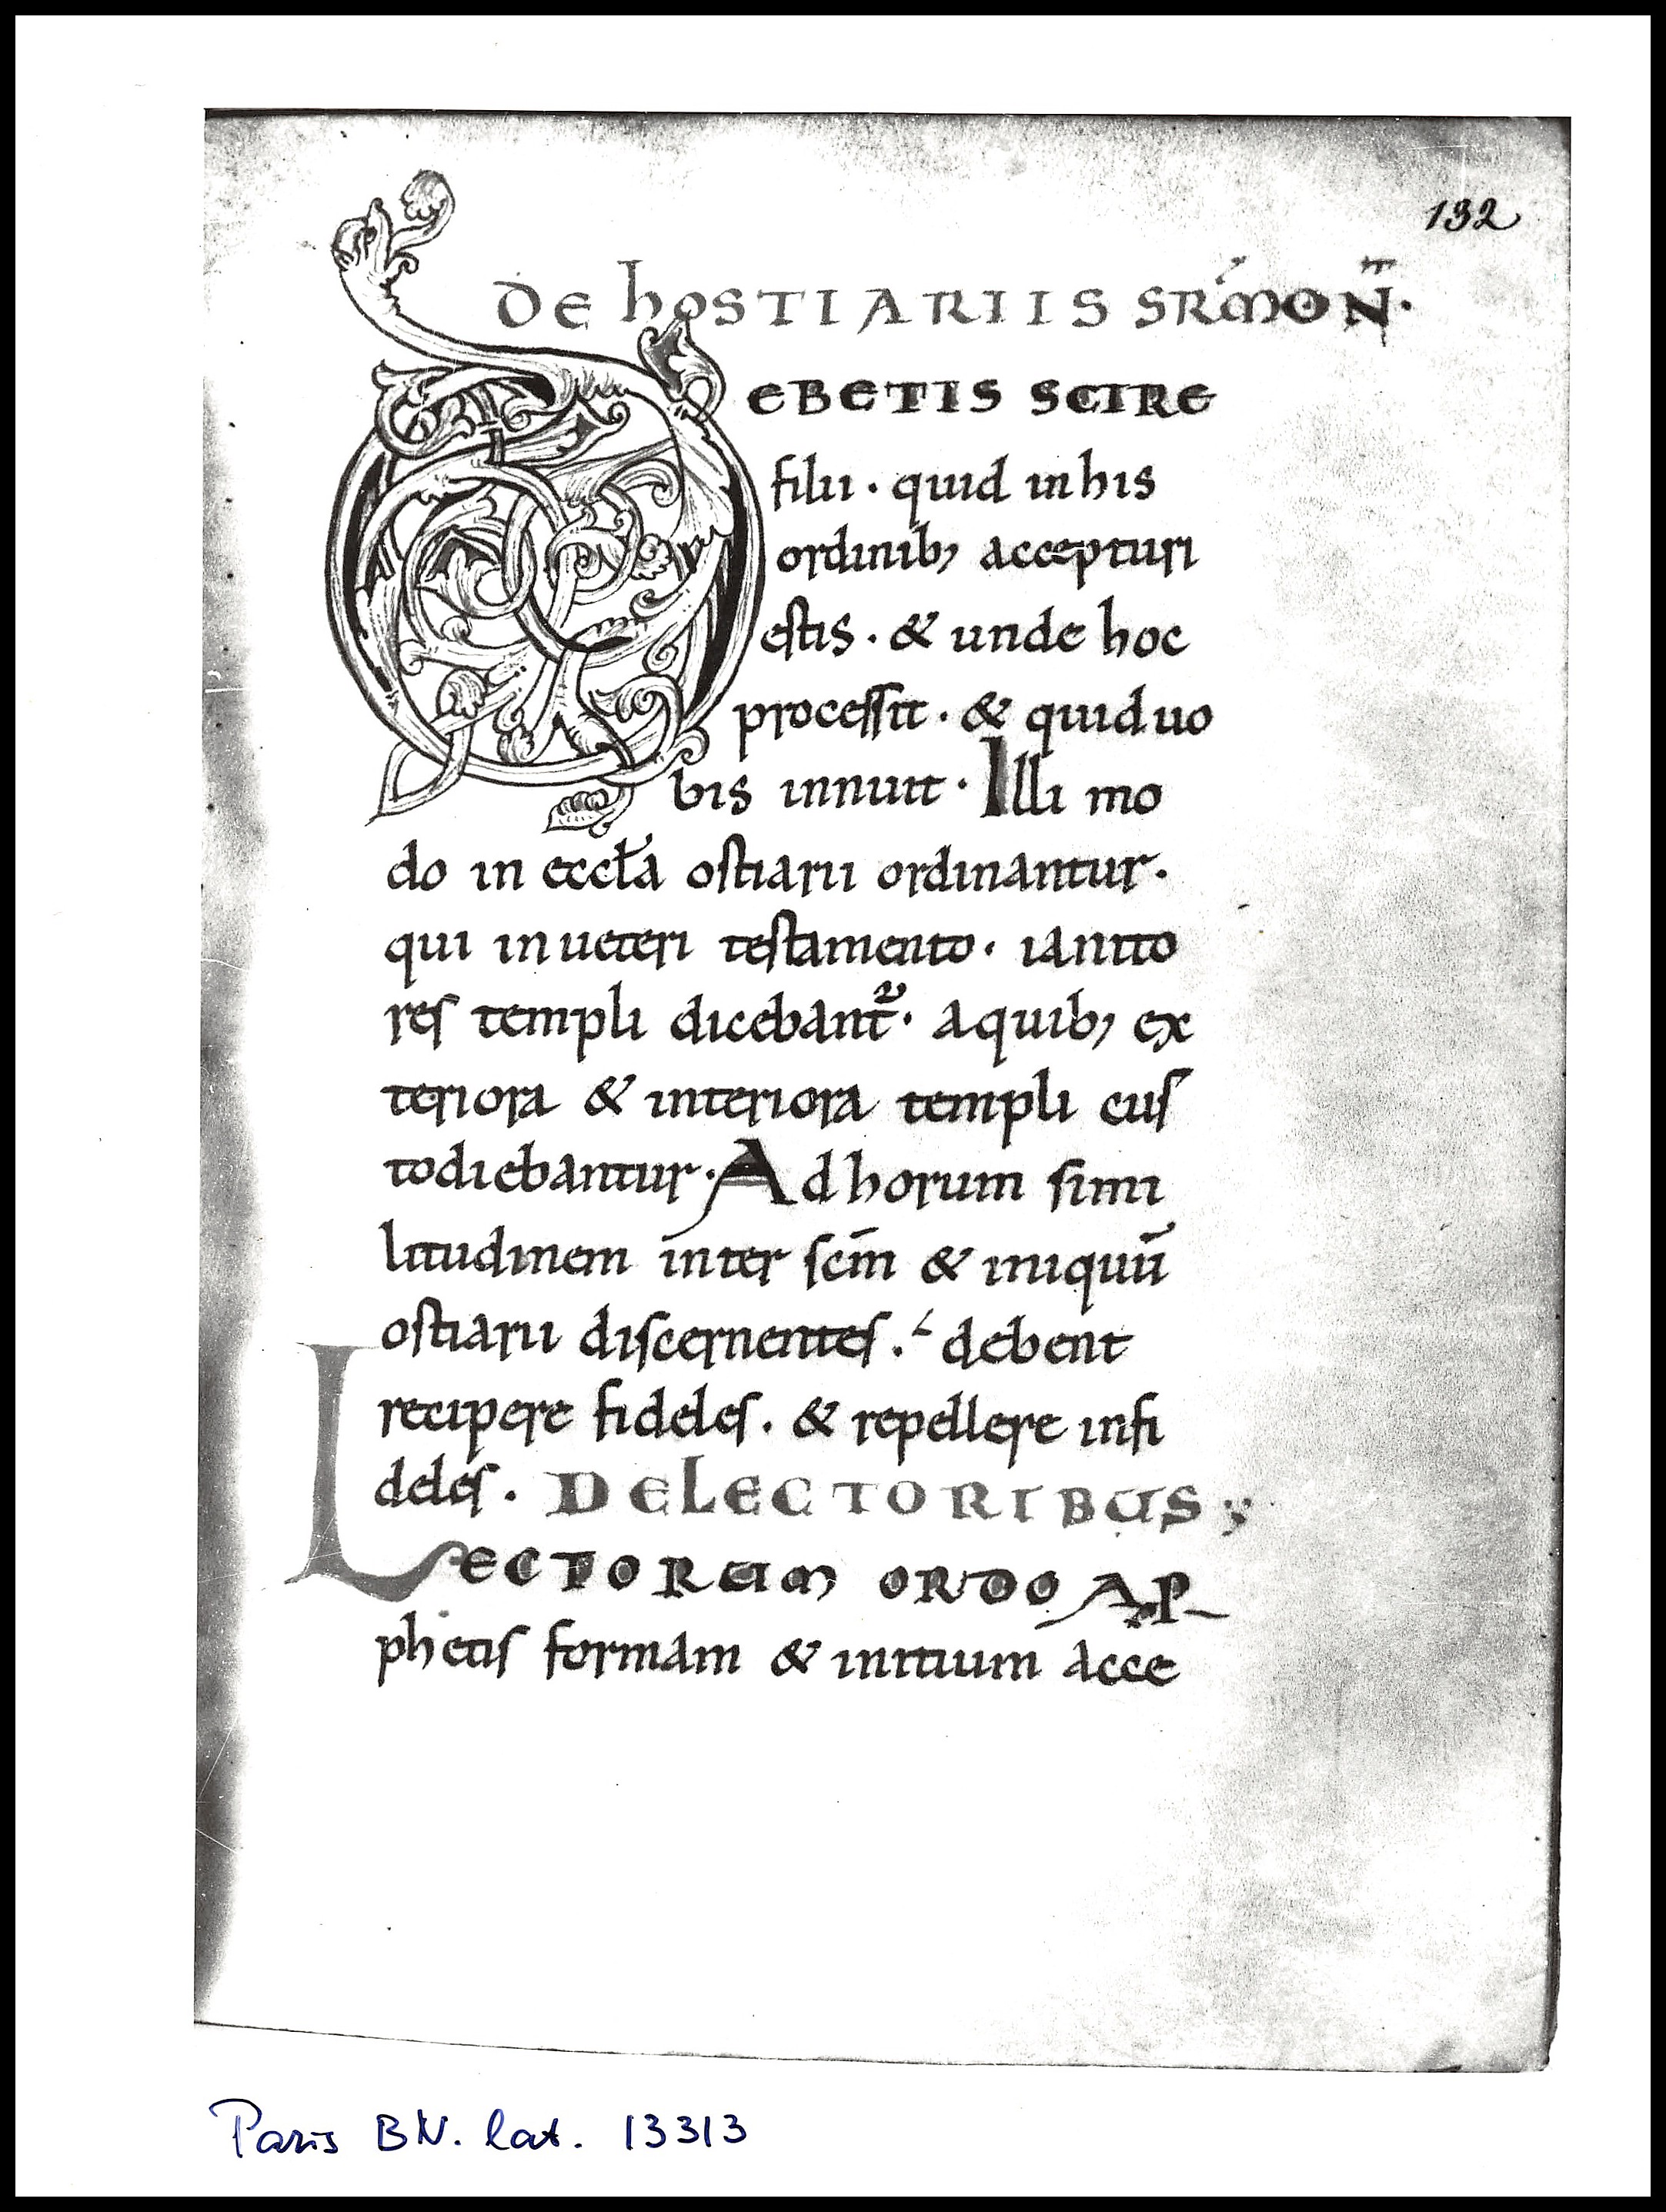 132
DE hOSTIARIIS SRMON̄.
DEBETIS SCIRE
filii · quid in his
ordinib; accepturi
estis · & unde hoc
processit · & quid uo
bis innuit · Illi mo
do in eccła ostiarii ordinantur ·
qui in ueteri testamento · ianito
res templi dicebant᷑ · a quib; ex
teriora & interiora templi cus
todiebantur · Ad horum simi
litudinem inter scm̄ & iniquū
ostiarii discernentes · debent
recipere fideles · & repellere infi
deles · DE LECTORIBUS ;
LECTORUM ORDO A P
phetis formam & initium acce
Paris BN. lat. 13313